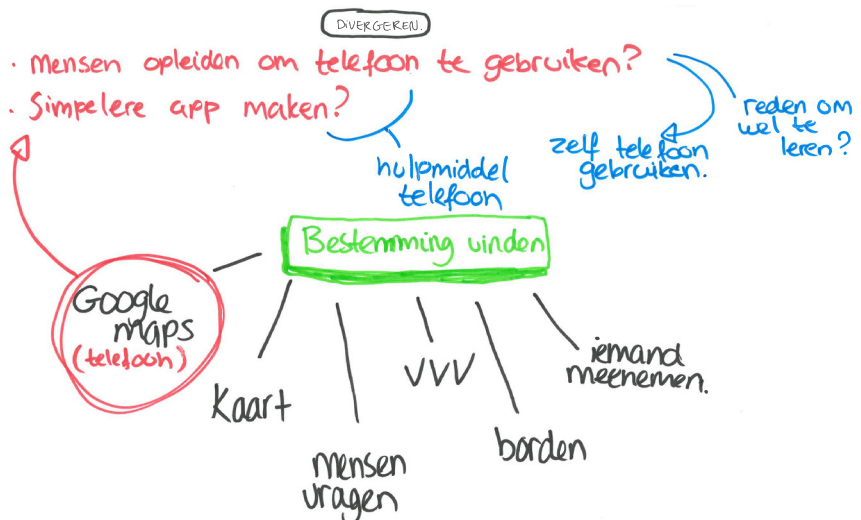 DIVERGEREN.
· mensen opleiden om telefoon te gebruiken?
· Simpelere app maken?
reden om
wel te
leren?
zelf telefoon
gebruiken.
hulpmiddel
telefoon
Bestemming vinden
Google
maps
(telefoon)
Kaart
mensen
vragen
VVV
borden
iemand
meenemen.